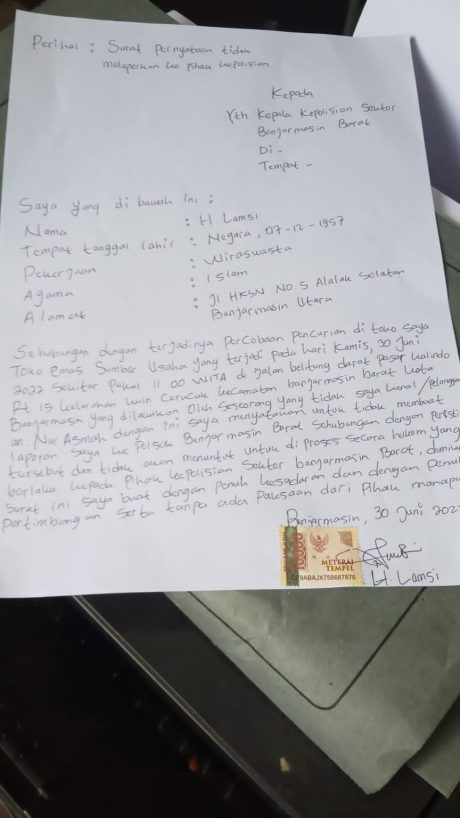 Perihal : Surat pernyataan tidak
melaporkan ke pihak kepolisian
Kepada
Yth Kepala Kepolisian Sektor
Banjarmasin Barat
Di -
Tempat -
Saya yang di bawah ini :
Nama : H Lamsi
Tempat tanggal lahir : Negara, 07-12-1957
Pekerjaan : Wiraswasta
Agama : Islam
Alamat : Jl HKSN No.5 Alalak Selatan
Banjarmasin Utara
Sehubungan dengan terjadinya Percobaan Pencurian di toko saya
Toko emas Sumber Usaha yang terjadi pada hari Kamis, 30 Juni
2022 Sekitar Pukul 11 00 WITA di Jalan belitung darat pasar
Rt 15 kecamatan banjarmasin barat kota
Banjarmasin yang dilakukan oleh seseorang yang tidak saya kenal / Pelanggan
an. Nur Asniah dengan ini saya menyatakan untuk tidak membuat
laporan saya ke Polsek Banjarmasin Barat Sehubungan dengan
tersebut dan tidak akan menuntut untuk di proses secara hukum yang
berlaku kepada Pihak kepolisian Sektor banjarmasin Barat,
Surat ini saya buat dengan penuh kesadaran dan dengan Penuh
Pertimbangan serta tanpa ada Paksaan dari Pihak
Banjarmasin, 30 Juni
10000
METERAI
TEMPEL
H Lamsi